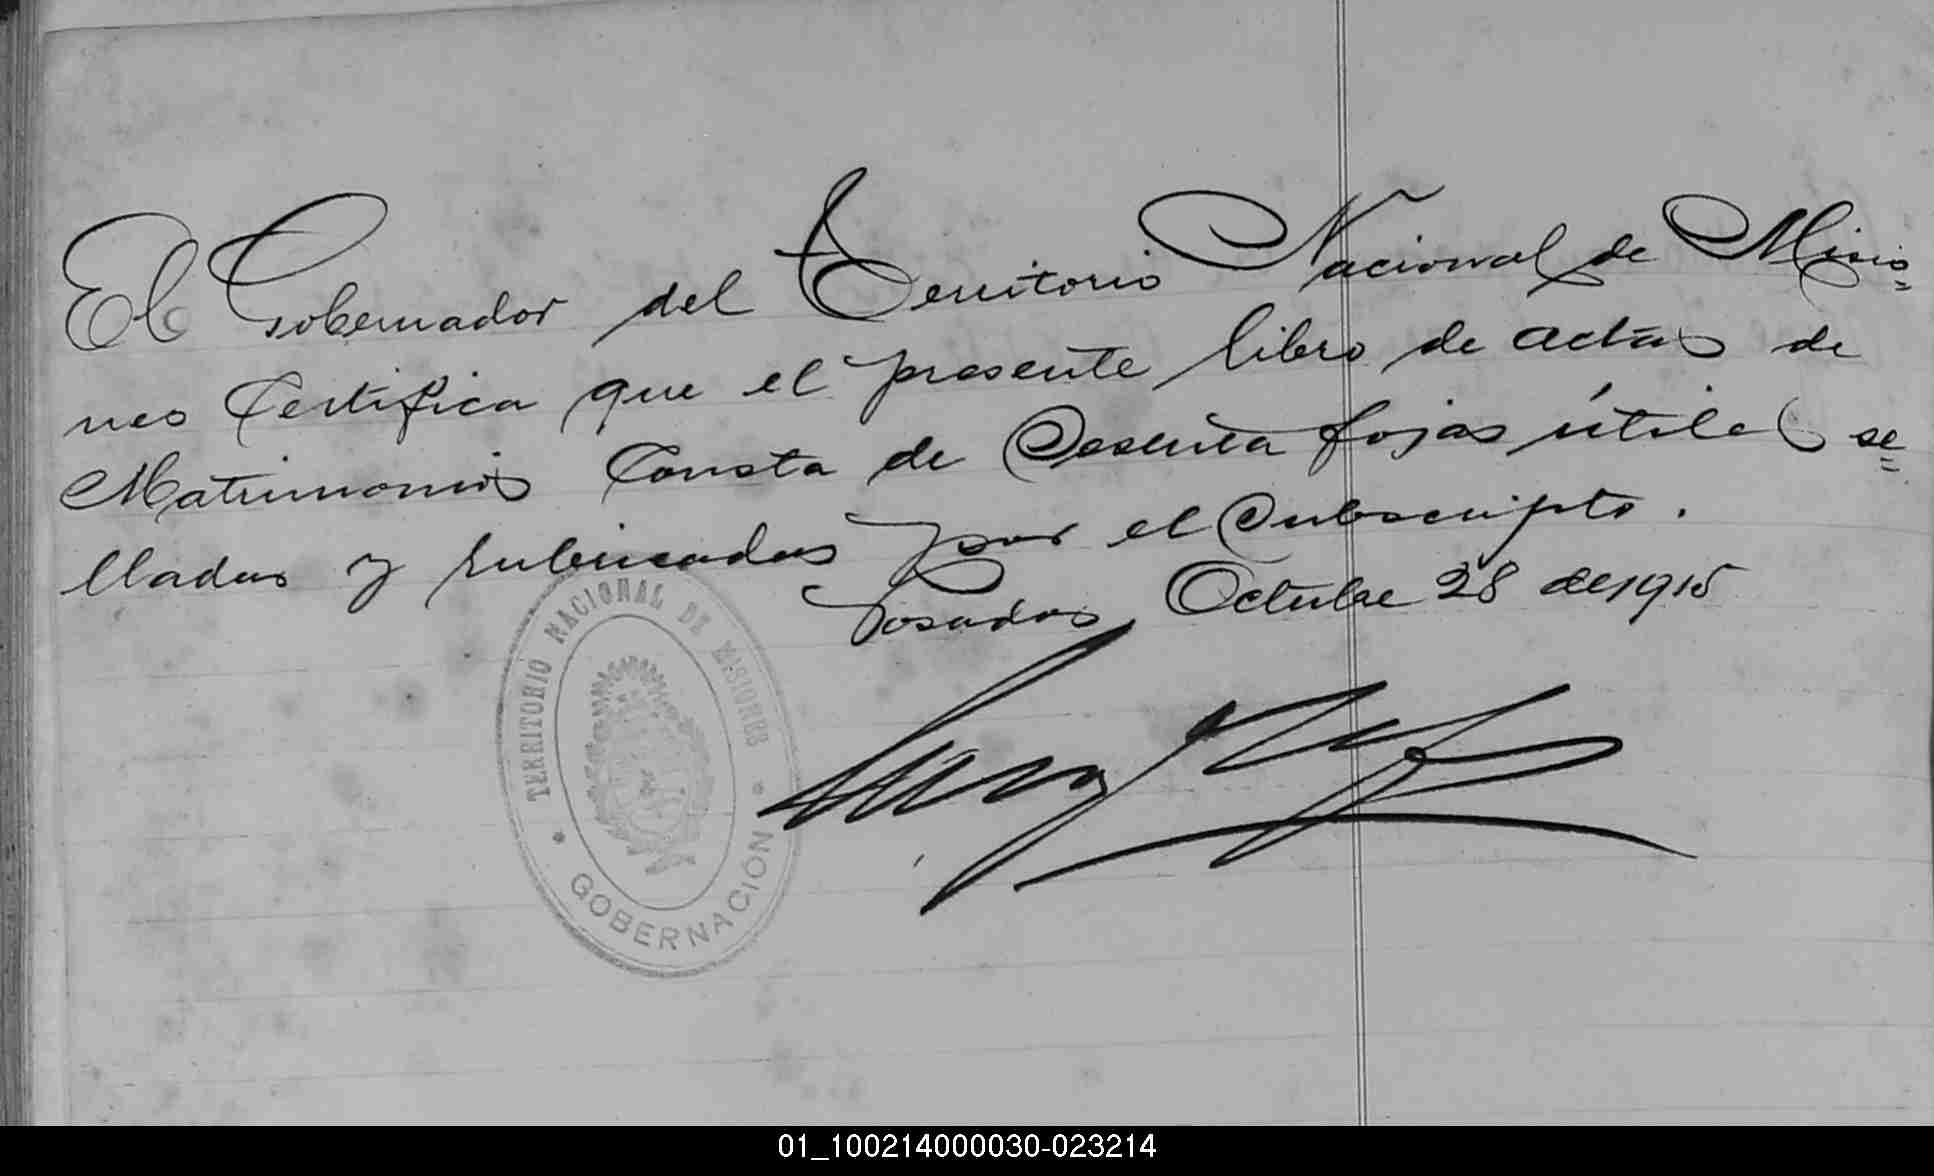 El Gobernador del Territorio Nacional de Misio=
nes Certifica que el presente libro de actas de
Matrimonios Consta de Sesenta fojas útiles se=
lladas y rubricadas por el Subscripto.
Posadas Octubre 28 de 1915
TERRITORIO NACIONAL DE MISIONES
* GOBERNACION *
01_100214000030-023214